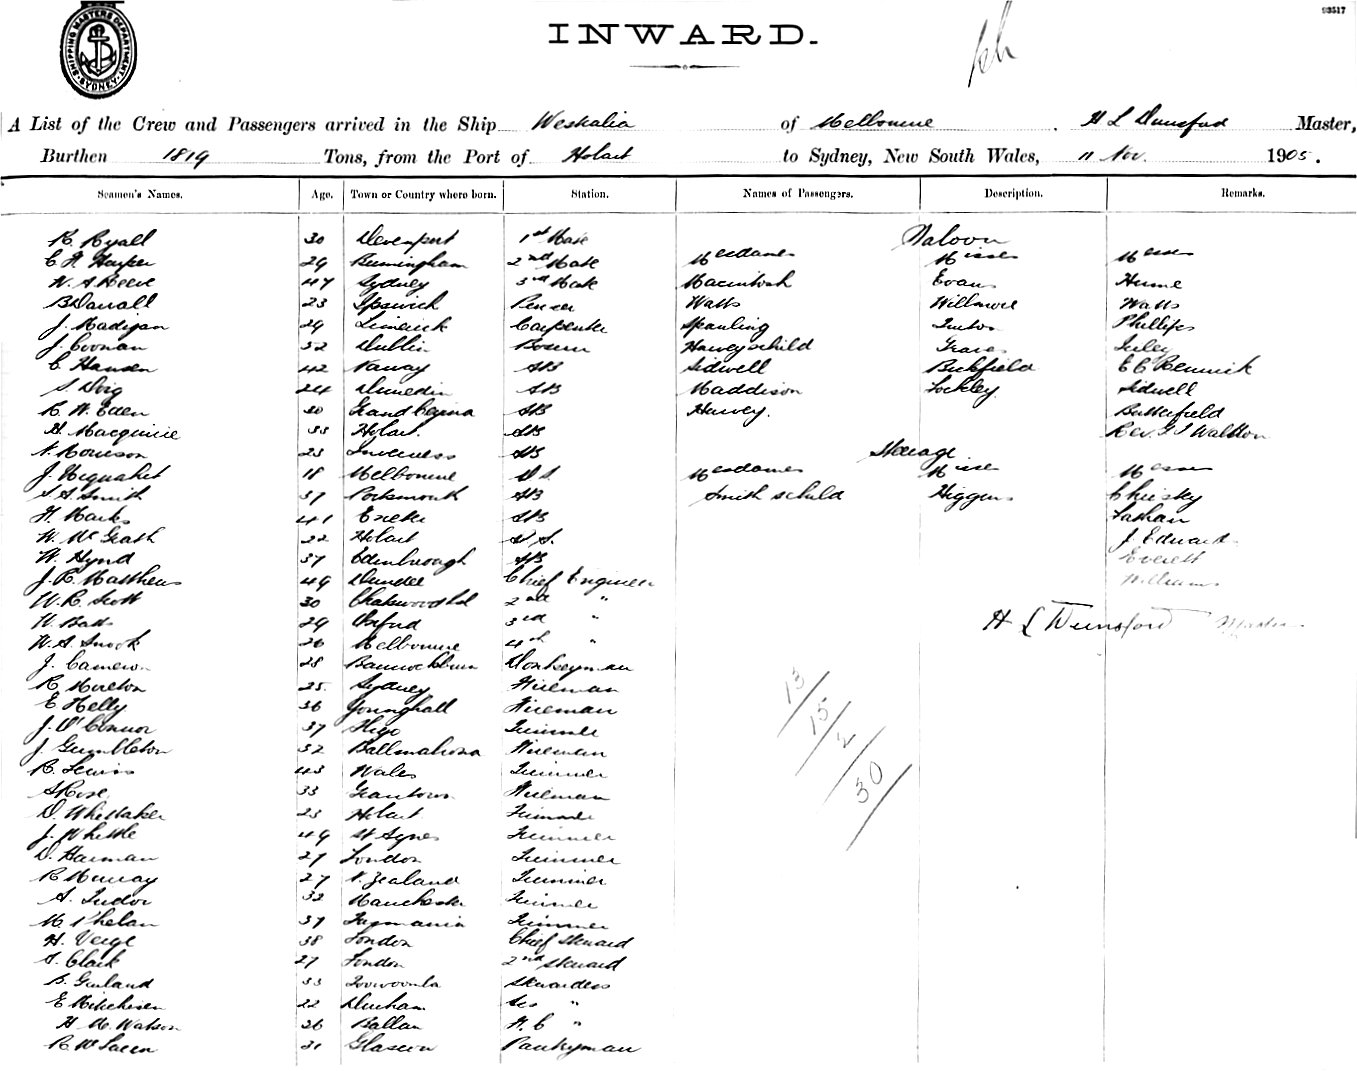 93517
SHIPPING MASTERS DEPARTMENT SYDNEY
INWARD.
A List of the Crew and Passengers arrived in the Ship Westralia of Melbourne H L Dunsford Master,
Burthen 1819 Tons, from the Port of Hobart to Sydney, New South Wales, 11 Nov. 1905.
Seamen's Names. Age. Town or Country where born. Station. Names of Passengers. Description. Remarks.
R. Ryall 30 Devenport 1st Mate Saloon
C H Harper 29 Birmingham 2nd Mate Mesdames Misses Messrs
W. S Reeve 47 Sydney 3rd Mate Macintosh Evans Hume
B Darrall 23 Ipswich Watts Willmore Watts
J. Madigan 29 Limerick Carpenter Spanling Phillips
J. Coonan 52 Dublin Bosun Harvey & child
C Hansen 42 Norway AB Sidwell Butchfield E C Rennick
S Doig 24 Dunedin AB Maddison Lockley Sidwell
R. W. Eden 30 AB Harvey. Butterfield
H. Macquirie 33 Hobart. AB Rev. Walton
23 Inverness AB Steerage
J. 18 Melbourne O S Mesdames Misses Messrs
S. A. Smith 37 Portsmouth AB Smith & child Higgens Chirsky
H. Marks 41 Exeter AB
W. McGrath 22 Hobart O. S. J. Edwards
W. Hynd 37 Edinborough AB Everett
J. R. Matthews 49 Dundee Chief Engineer Williams
W. R. Scott 30 Chatswood 2nd "
W. Batts 29 Oxford 3rd " H L Dunsford Master
W. A. Snook 26 Melbourne 4th "
J. Cameron 28 Bannockburn Donkeyman
R Morelton 25. Sydney Fireman 13
E Kelly 36 Younghall Fireman 15
J. O'Connor 37 Sligo Trimmer 2
J. Gumbleton 32 Fireman 30
R. Lewis 43 Wales Trimmer
S Rose 33 Grantown Fireman
D. Whittaker 23 Hobart Trimmer
J. Whittle 49 St Agnes Trimmer
D. Harman 27 London Trimmer
R Murray 27 N. Zealand Trimmer
A. Tudor 32 Manchester Trimmer
M. Phelan 37 Tasmania Trimmer
H. Verge 38 London Chief Steward
S. Clark 27 London 2nd Steward
B. Garland 33 Toowoomba Stewardess
E Mitcheson 22 Durham "
H M. Watson 26 Ballan F. C "
R McLaren 21 Glascow Pantryman